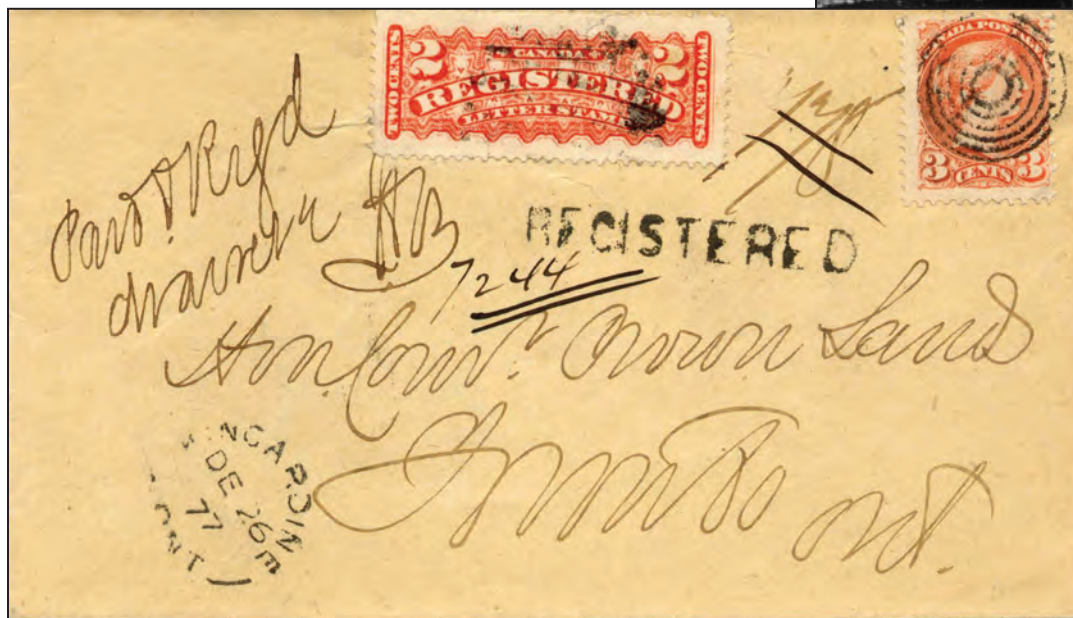 CANADA
2 2
TWO CENTS TWO CENTS
REGISTERED
LETTER STAMP
CANADA POSTAGE
3 CENTS 3
Paid & Regd
REGISTERED
7244
Hon. Comr. Crown Lands
Toronto Ont.
KINCARDINE
DE 26
77
ONT